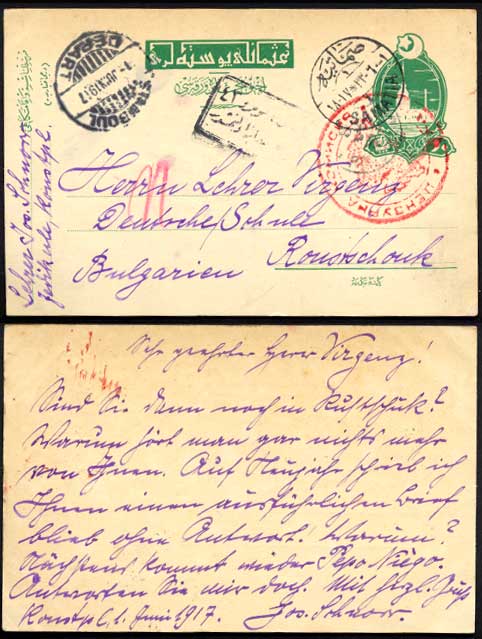 عثمانلی پوسته لری
STAMBOUL
DEPART
SAMATIA
Herrn Lehrer Virgenz
Deutsche Schule
Bulgarien Roustschouk
Lehrer Jos. Schnorr
Konstpl.
Sehr geehrter Herr Virgenz!
Sind Sie denn noch in Rustschuk?
Warum hört man gar nichts mehr
von Ihnen. Auf Neujahr schrieb ich
Ihnen einen ausführlichen Brief
blieb ohne Antwort. Warum?
Nächstens kommt wieder Pepo Niego.
Antworten Sie mir doch. Mit herzl. Gruß
Konstpl, 1. Juni 1917. Jos. Schnorr.